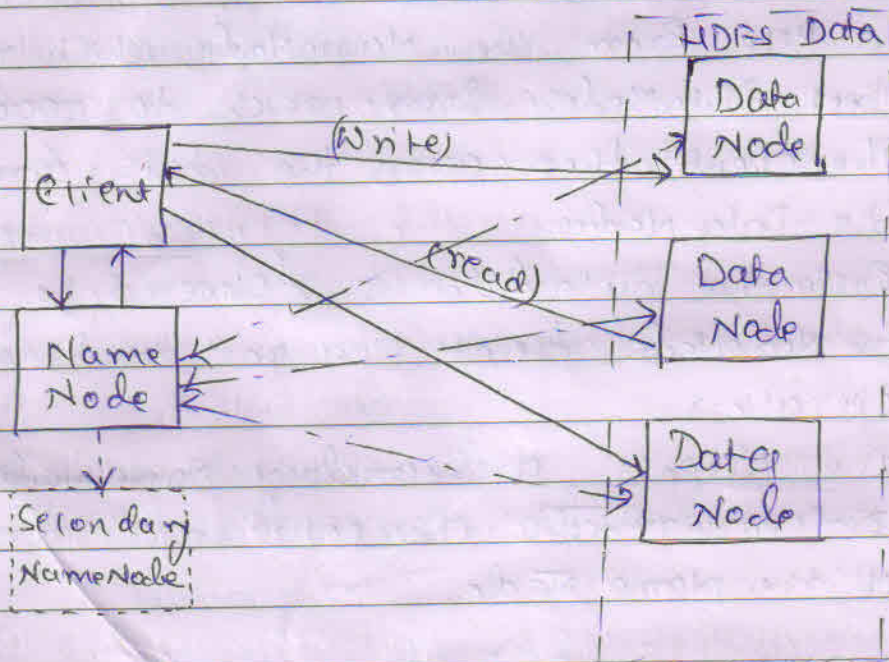 HDFS Data
Data
Node
(Write)
Client
(read)
Data
Node
Name
Node
Data
Node
Secondary
NameNode